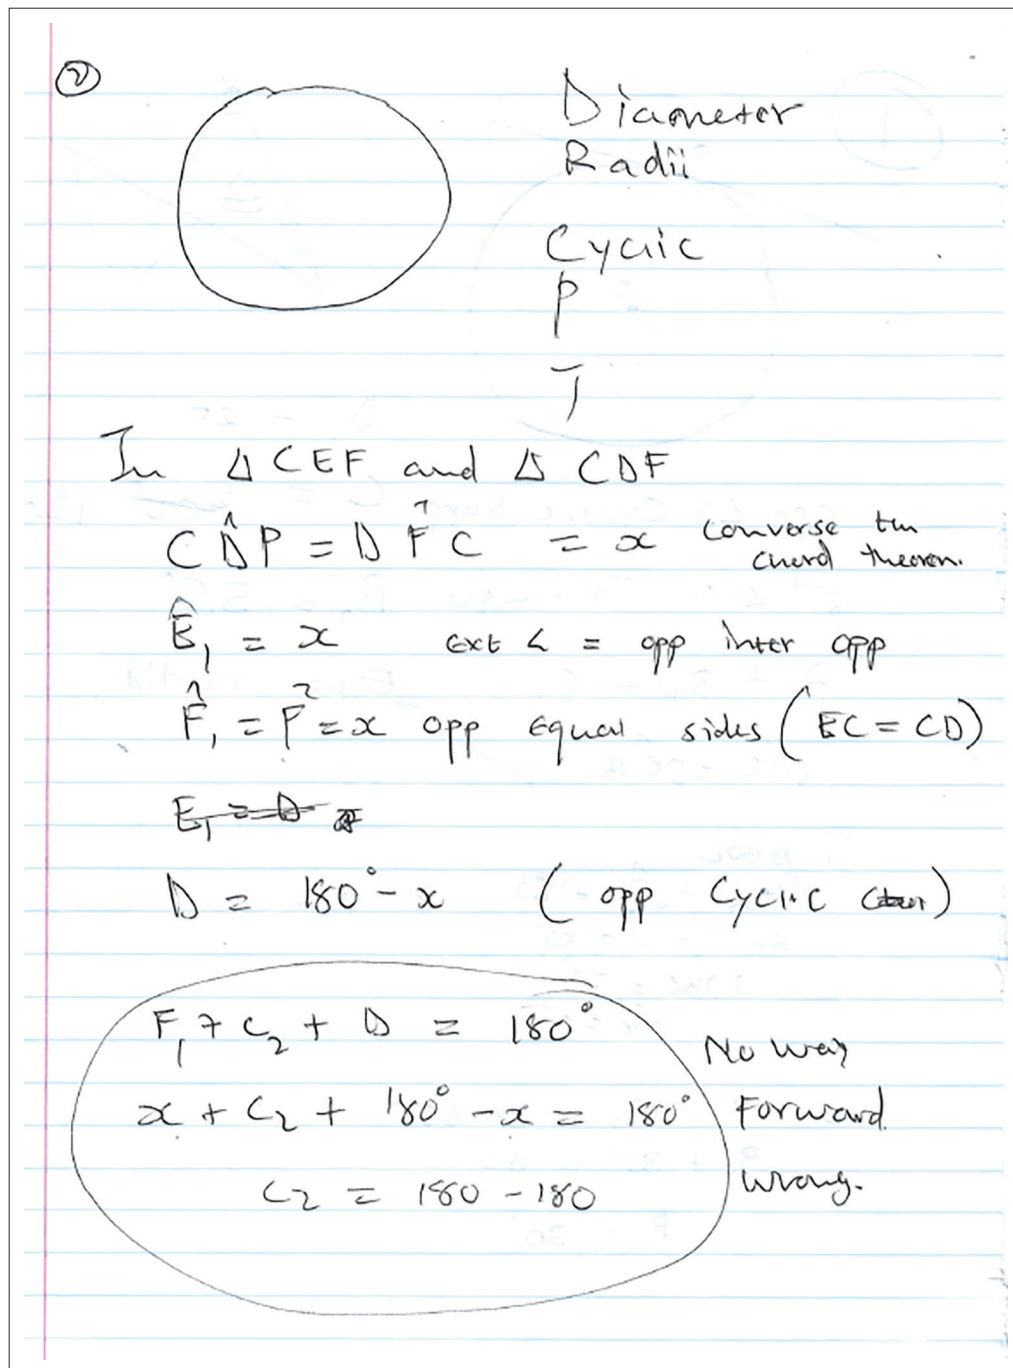 ②
Diameter
Radii
Cyclic
P
T
In Δ CEF and Δ CDF
C D̂ P = D F̂ C = x converse tan
chord theorem.
Ê₁ = x ext < = opp inter opp
F̂₁ = F̂ = x opp equal sides (EC = CD)
E₁ = D
D = 180° - x (opp cyclic )
F₁ + C₂ + D = 180°
No way
x + C₂ + 180° - x = 180° Forward.
C₂ = 180 - 180
wrong.